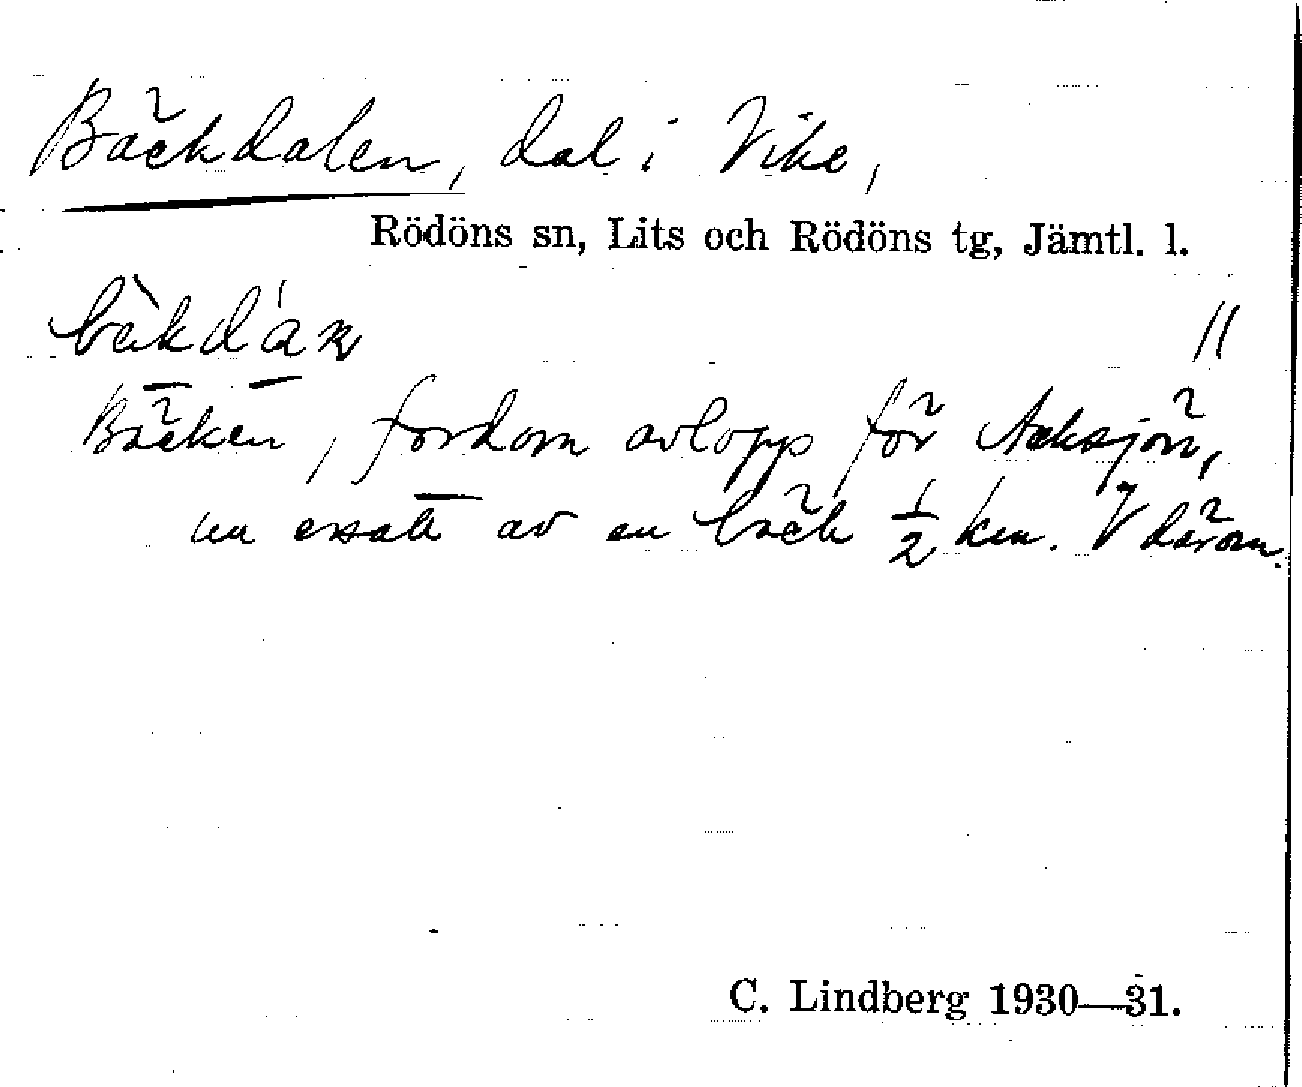 Bäckdalen, dal i Vike,
Rödöns sn, Lits och Rödöns tg, Jämtl. l.
bàkdáṉ //
Bäcken, fordom avlopp för Acksjön,
nu ersatt av en bäck 1/2 km. V därom.
C. Lindberg 1930—31.